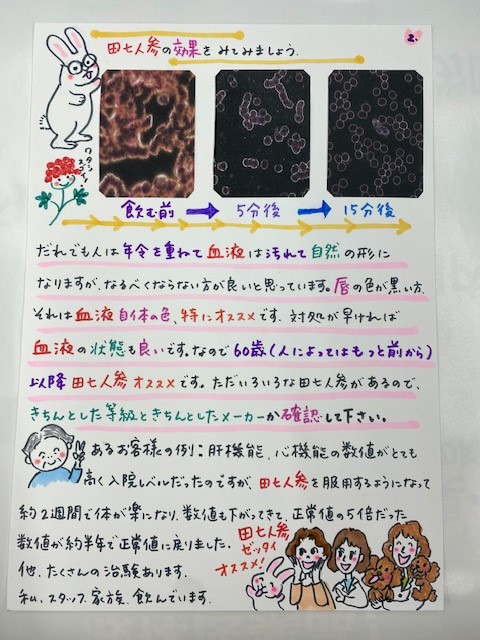 2.
田七人参の効果をみてみましょう.
ワタシ
スゴイ!
飲む前 → 5分後 → 15分後
だれでも人は年令を重ねて血液は汚れて自然の形に
なりますが、なるべくならない方が良いと思っています。唇の色が黒い方、
それは血液自体の色、特にオススメです. 対処が早ければ
血液の状態も良いです。なので60歳(人によってはもっと前から)
以降田七人参オススメです。ただいろいろな田七人参があるので、
きちんとした等級ときちんとしたメーカーか確認して下さい。
あるお客様の例:肝機能、心機能の数値がとても
高く入院レベルだったのですが、田七人参を服用するようになって
約2週間で体が楽になり、数値も下がってきて、正常値の5倍だった
数値が約半年で正常値に戻りました.
他、たくさんの治験あります.
私、スタッフ、家族、飲んでいます.
田七人参
ゼッタイ
オススメ!